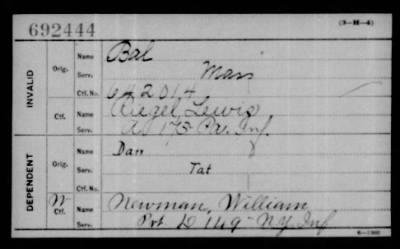 692444
(3-H-4)
INVALID
Orig.
Name Bal
Serv. Mars
Ctf. No. 642014
Ctf.
Name Riegel, Lewis
Serv. A 173 Pa. Inf.
DEPENDENT
Orig.
Name Darr
Serv. Tat
Ctf. No.
W
Ctf.
Name Newman, William
Serv. Pvt D 149 NY Inf